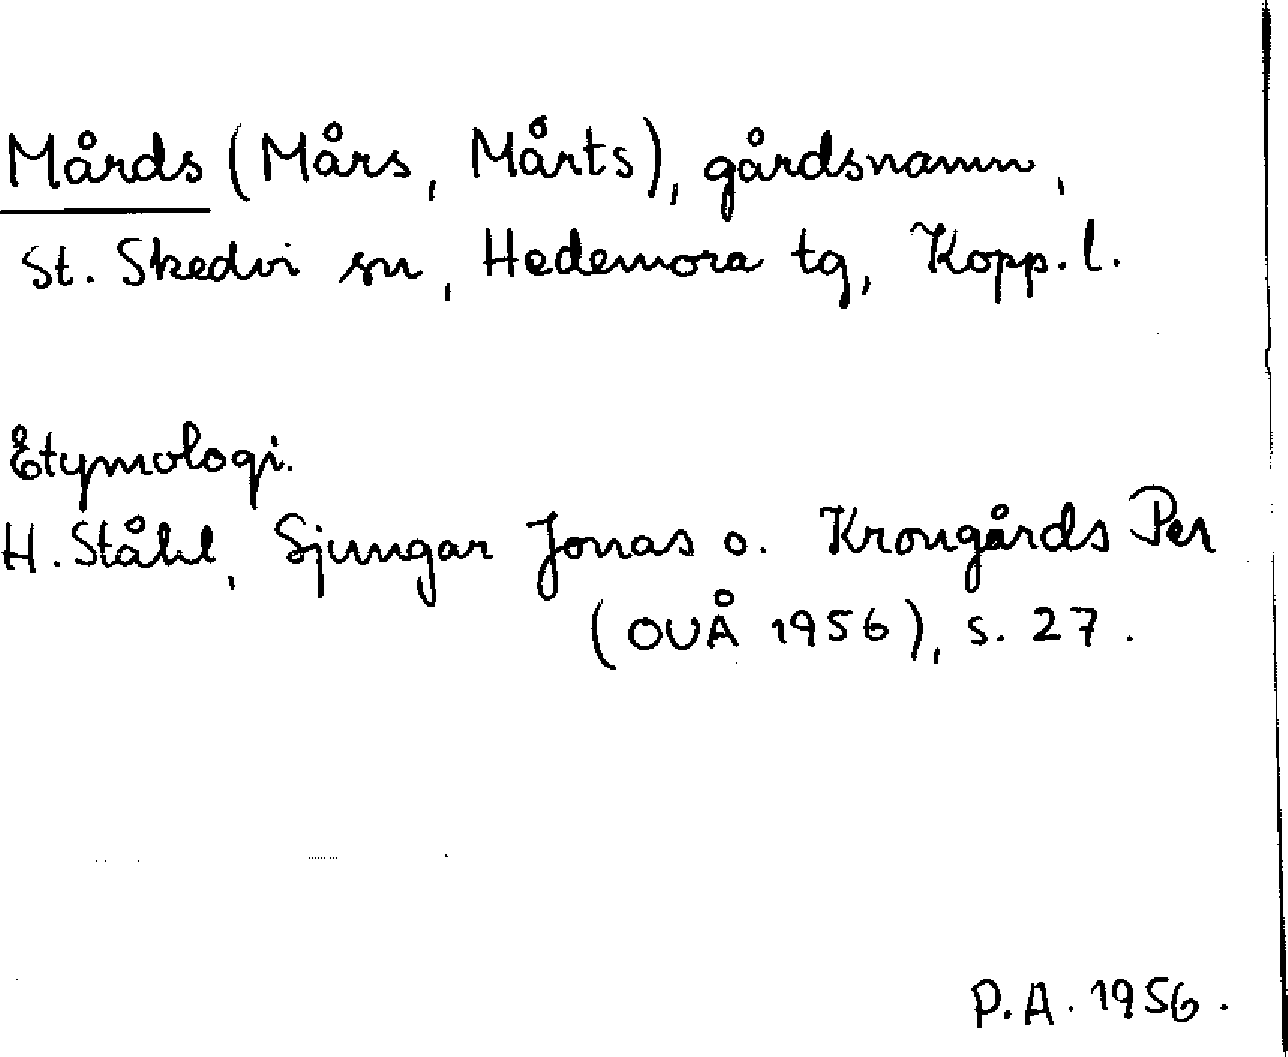 Mårds (Mårs, Mårts), gårdsnamn,
St. Skedvi sn, Hedemora tg, Kopp. l.
Etymologi.
H. Ståhl, Sjungar Jonas o. Krongårds Per
(OUÅ 1956), s. 27.
P.A. 1956.